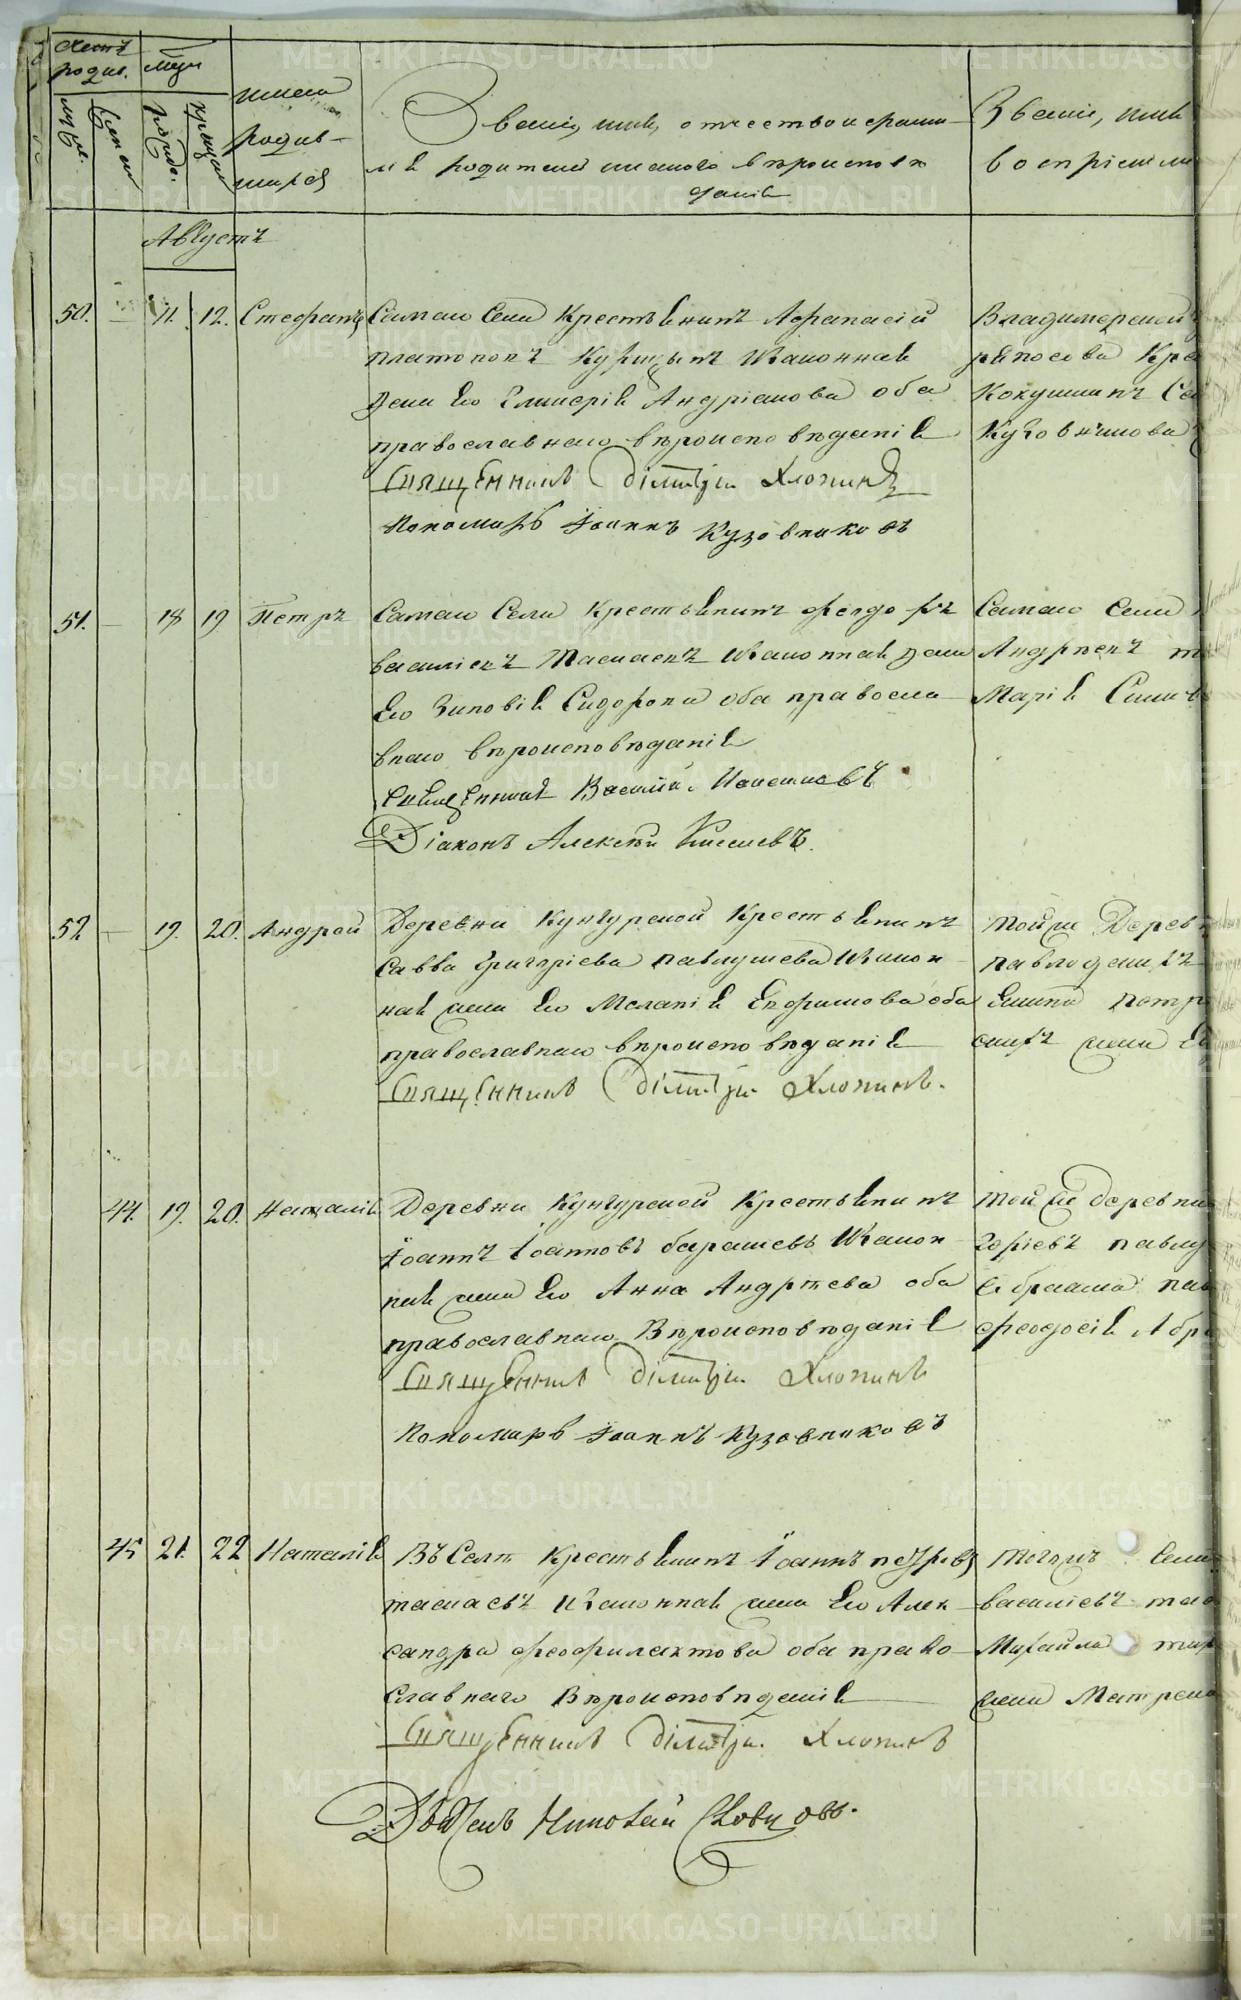 Счетъ родив.
Мѣсяц.
имена родив-шихся
Званіе, имя, отчество и фами-
лія родителей и какого вѣроисповѣ
данія
Званіе, имя
воспріемни
мужес.
женск
рожд.
крещен
Августъ
50. — 11. 12. Стефанъ
Самаго Села Крестьянинъ Афанасій
Платоновъ Курицынъ и законная
жена Его Гликерія Андріанова оба
православнаго вѣроисповѣданія
Священникъ Дімитрій Хлопинъ
Пономарь Іоаннъ Кузовниковъ
Владимерской
Кокушкинъ
Кузовникова
51. — 18 19 Петръ
Самаго Села Крестьянинъ Феодоръ
Василіевъ Таскаевъ и законная жена
Его Зиновія Сидорова оба правосла
внаго вѣроисповѣданія
Священникъ Василій
Діаконъ Алексѣй Киселевъ.
Самаго Села
Андреевъ
Марія
52 — 19. 20. Андрей
Деревни Кунгурской Крестьянинъ
Савва Григоріевъ Павлушевъ и закон
ная жена Его Меланія Ефимова оба
православнаго вѣроисповѣданія
Священникъ Дімитрій Хлопинъ.
Той же Дерев
жена Е
44. 19. 20. Наталія
Деревни Кунгурской Крестьянинъ
Іоаннъ Іоанновъ барашевъ и закон
ная жена Его Анна Андреева оба
православнаго Вѣроисповѣданія
Священникъ Дімитрій Хлопинъ
Пономарь Іоаннъ Кузовниковъ
Той же деревни
Феодосія Абр
45 21. 22 Наталія
Въ Селѣ Крестьянинъ Іоаннъ Петровъ
таскаевъ и законная жена Его Алек
сандра Феофилактова оба право
славнаго Вѣроисповѣданія
Священникъ Дімитрій Хлопинъ
Дьячекъ Николай Словцовъ.
Тогожъ Села
Василіевъ тас
Михайла
жена Матрена
METRIKI.GASO-URAL.RU